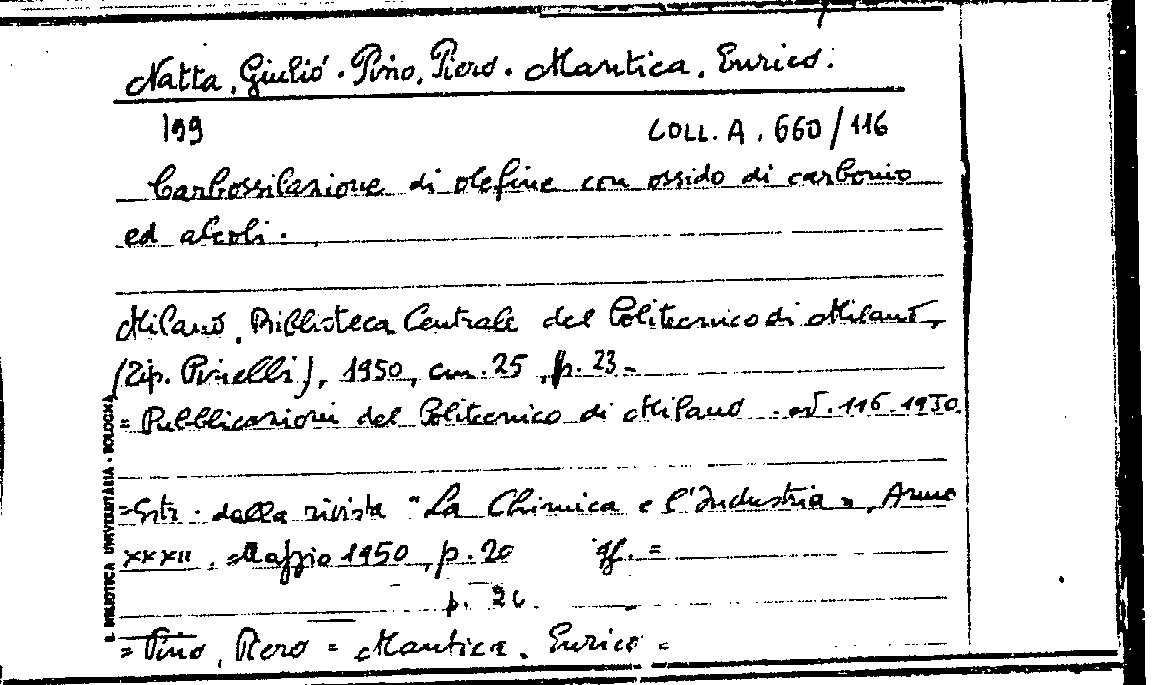 Natta, Giulio. Pino, Piero. Mantica, Enrico.
199 COLL. A. 660/116
Carbossilazione di olefine con ossido di carbonio
ed alcoli.
Milano, Biblioteca Centrale del Politecnico di Milano,
(Tip. Pinelli), 1950, cm. 25, p. 23 -
= Pubblicazioni del Politecnico di Milano. n. 116. 1950.
= Estr. dalla rivista "La Chimica e l'Industria", Anno
XXXII. Maggio 1950, p. 20
p. 26.
= Pino, Piero = Mantica, Enrico =
B. BIBLIOTECA UNIVERSITARIA - BOLOGNA